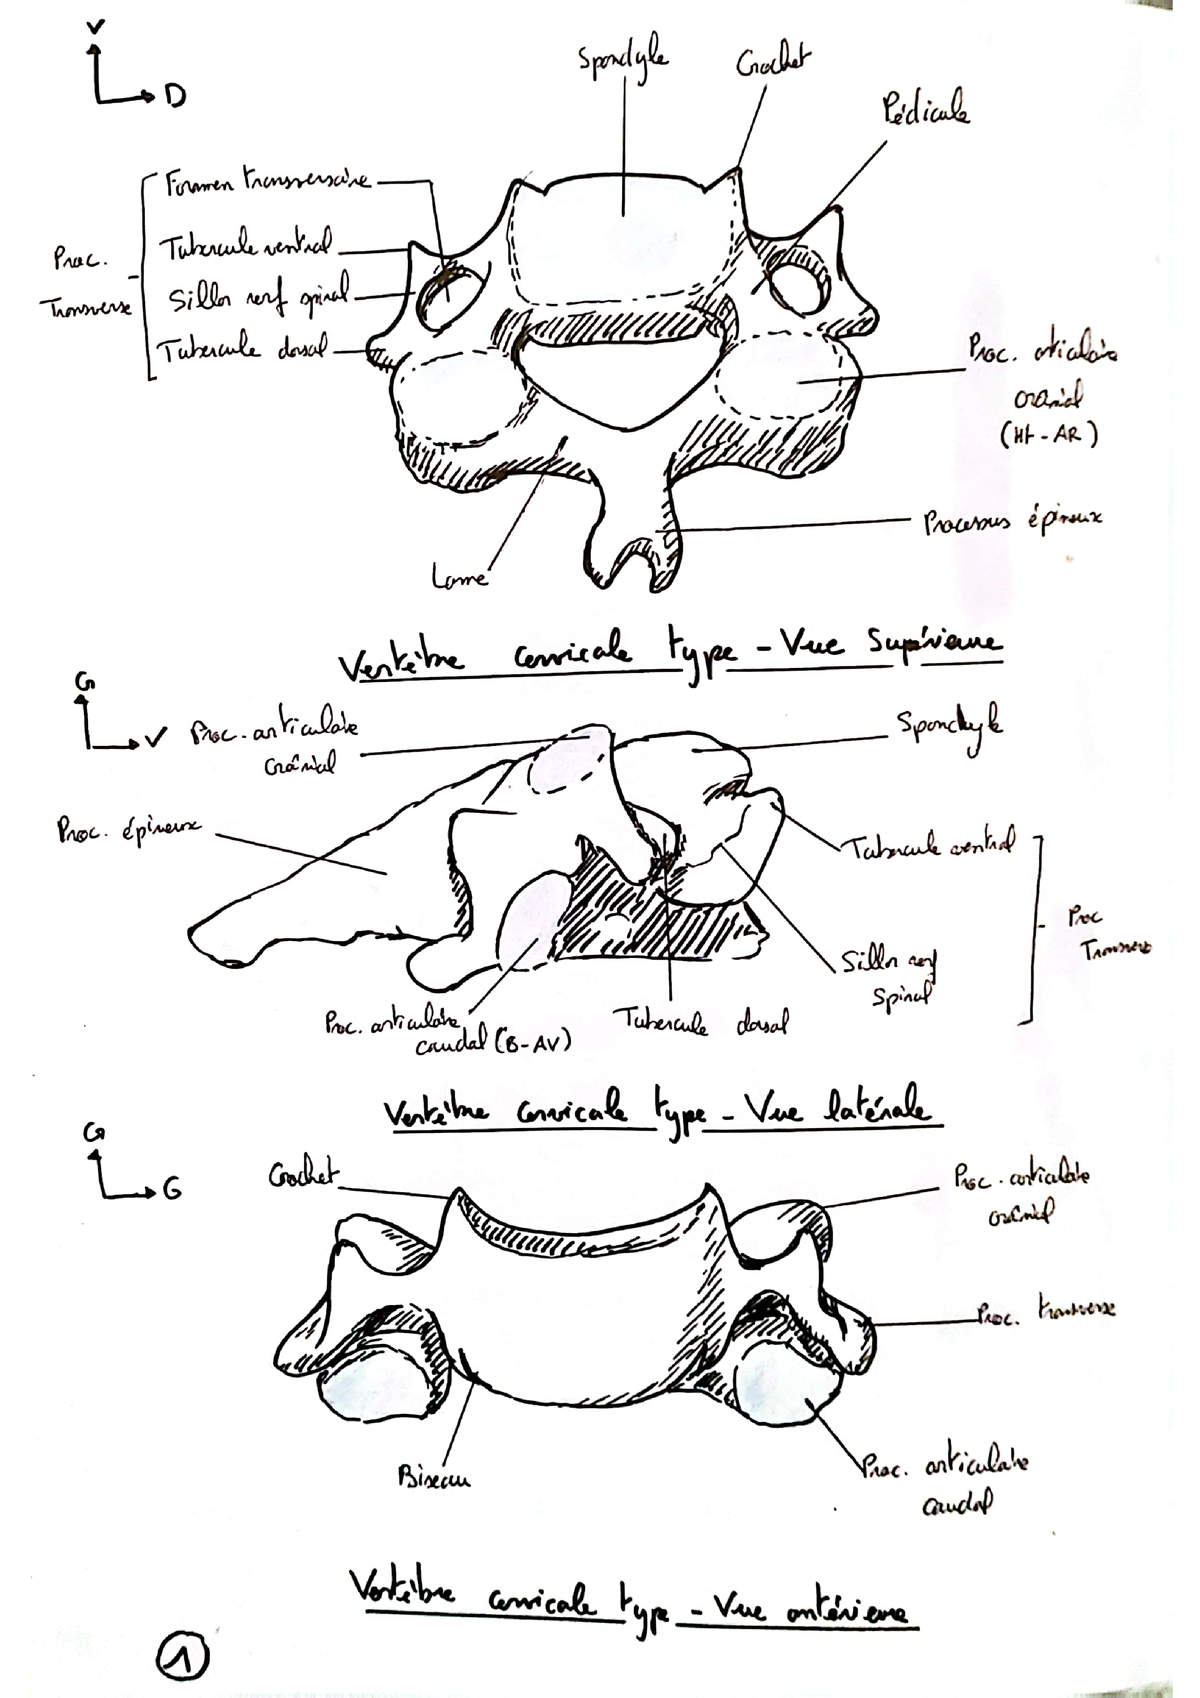 V
D
Spondyle
Crochet
Pédicule
Foramen transversaire
Tubercule ventral
Sillon nerf spinal
Tubercule dorsal
Proc.
Transverse
Proc. articulaire
cranial
(Ht - AR)
Processus épineux
Lame
Vertèbre cervicale type - Vue Supérieure
G
V
Proc. articulaire
crânial
Spondyle
Proc. épineux
Tubercule ventral
Proc
Transverse
Sillon nerf
spinal
Proc. articulaire
caudal (B-AV)
Tubercule dorsal
Vertèbre cervicale type - Vue latérale
G
G
Crochet
Proc. articulaire
crânial
Proc. transverse
Biseau
Proc. articulaire
caudal
Vertèbre cervicale type - Vue antérieure
1